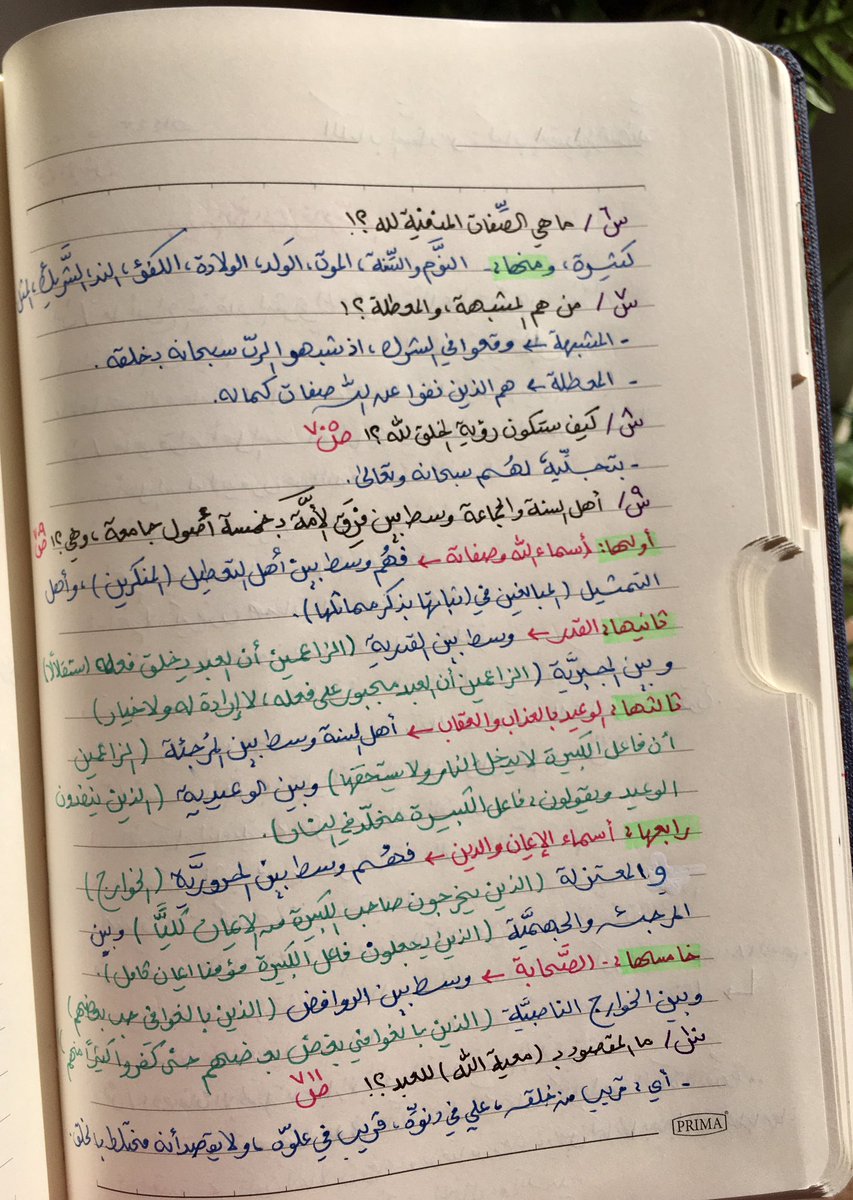 س٦/ ما هي الصِّفات المنفية لله ؟!
كثيرة، ومنها:- النَّوم والسِّنة، الموت، الوَلد، الولادة، الكفؤ، الند، الشَّريك، المثل
س٧/ من هم المشبهة، والمعطلة ؟!
- المشبهة ← وقعوا في الشرك، اذ شبهوا الربّ سبحانه بخلقه .
- المعطلة ← هم الذين نفوا عن الله صفات كماله.
س٨/ كيف ستكون رؤية الخلق لله ؟! ص٧٠٥
- بتجلّيه لهُم سبحانه وتعالى.
س٩/ أهل السنة والجماعة وسط بين فِرَق الأمَّة بخمسة أصُول جامعة، وهي؟! ص٧٠٩
أولها: أسماء الله وصفاته ← فهُم وسط بين أهل التعطيل (المنكرين)، وأهل
التمثيل (المبالغين في إثباتها بذكر مماثلها).
ثانيها: القدر ← وسط بين القدرية (الزاعمين أن العبد يخلق فعله استقلالًا)
وبين الجبريَّة (الزاعمين أن العبد مجبور على فعله، لا إرادة له ولا خيار)
ثالثها: الوعيد بالعذاب والعقاب ← أهل السنة وسط بين المُرجئة (الزاعمين
أن فاعل الكبيرة لا يدخل النار ولا يستحقها) وبين الوعيدية (الذين ينفذون
الوعيد ويقولون: فاعل الكبيرة مخلّد في النار).
رابعها: أسماء الإيمان والدين ← فهُم وسط بين الحروريَّة (الخوارج)
و المعتزلة (الذين يخرجون صاحب الكبيرة من الايمان كليًّا) وبين
المرجئة والجهميَّة (الذين يجعلون فاعل الكبيرة مؤمنا ايمان كامل).
خامسها:- الصَّحابة ← وسط بين الروافض (الذين بالغوا في حب بعضهم)
وبين الخوارج الناصبيَّة (الذين بالغوا في بغض بعضهم حتى كفروا كثيرًا منهم)
س١٠/ ما المقصود بـ (معية الله) للعبد ؟! ص٧١١
- أي: قريب من خلقه، علي في دنوِّه، قريب في علوّه، ولا يقصد أنه مختلط بالخلق.
PRIMA